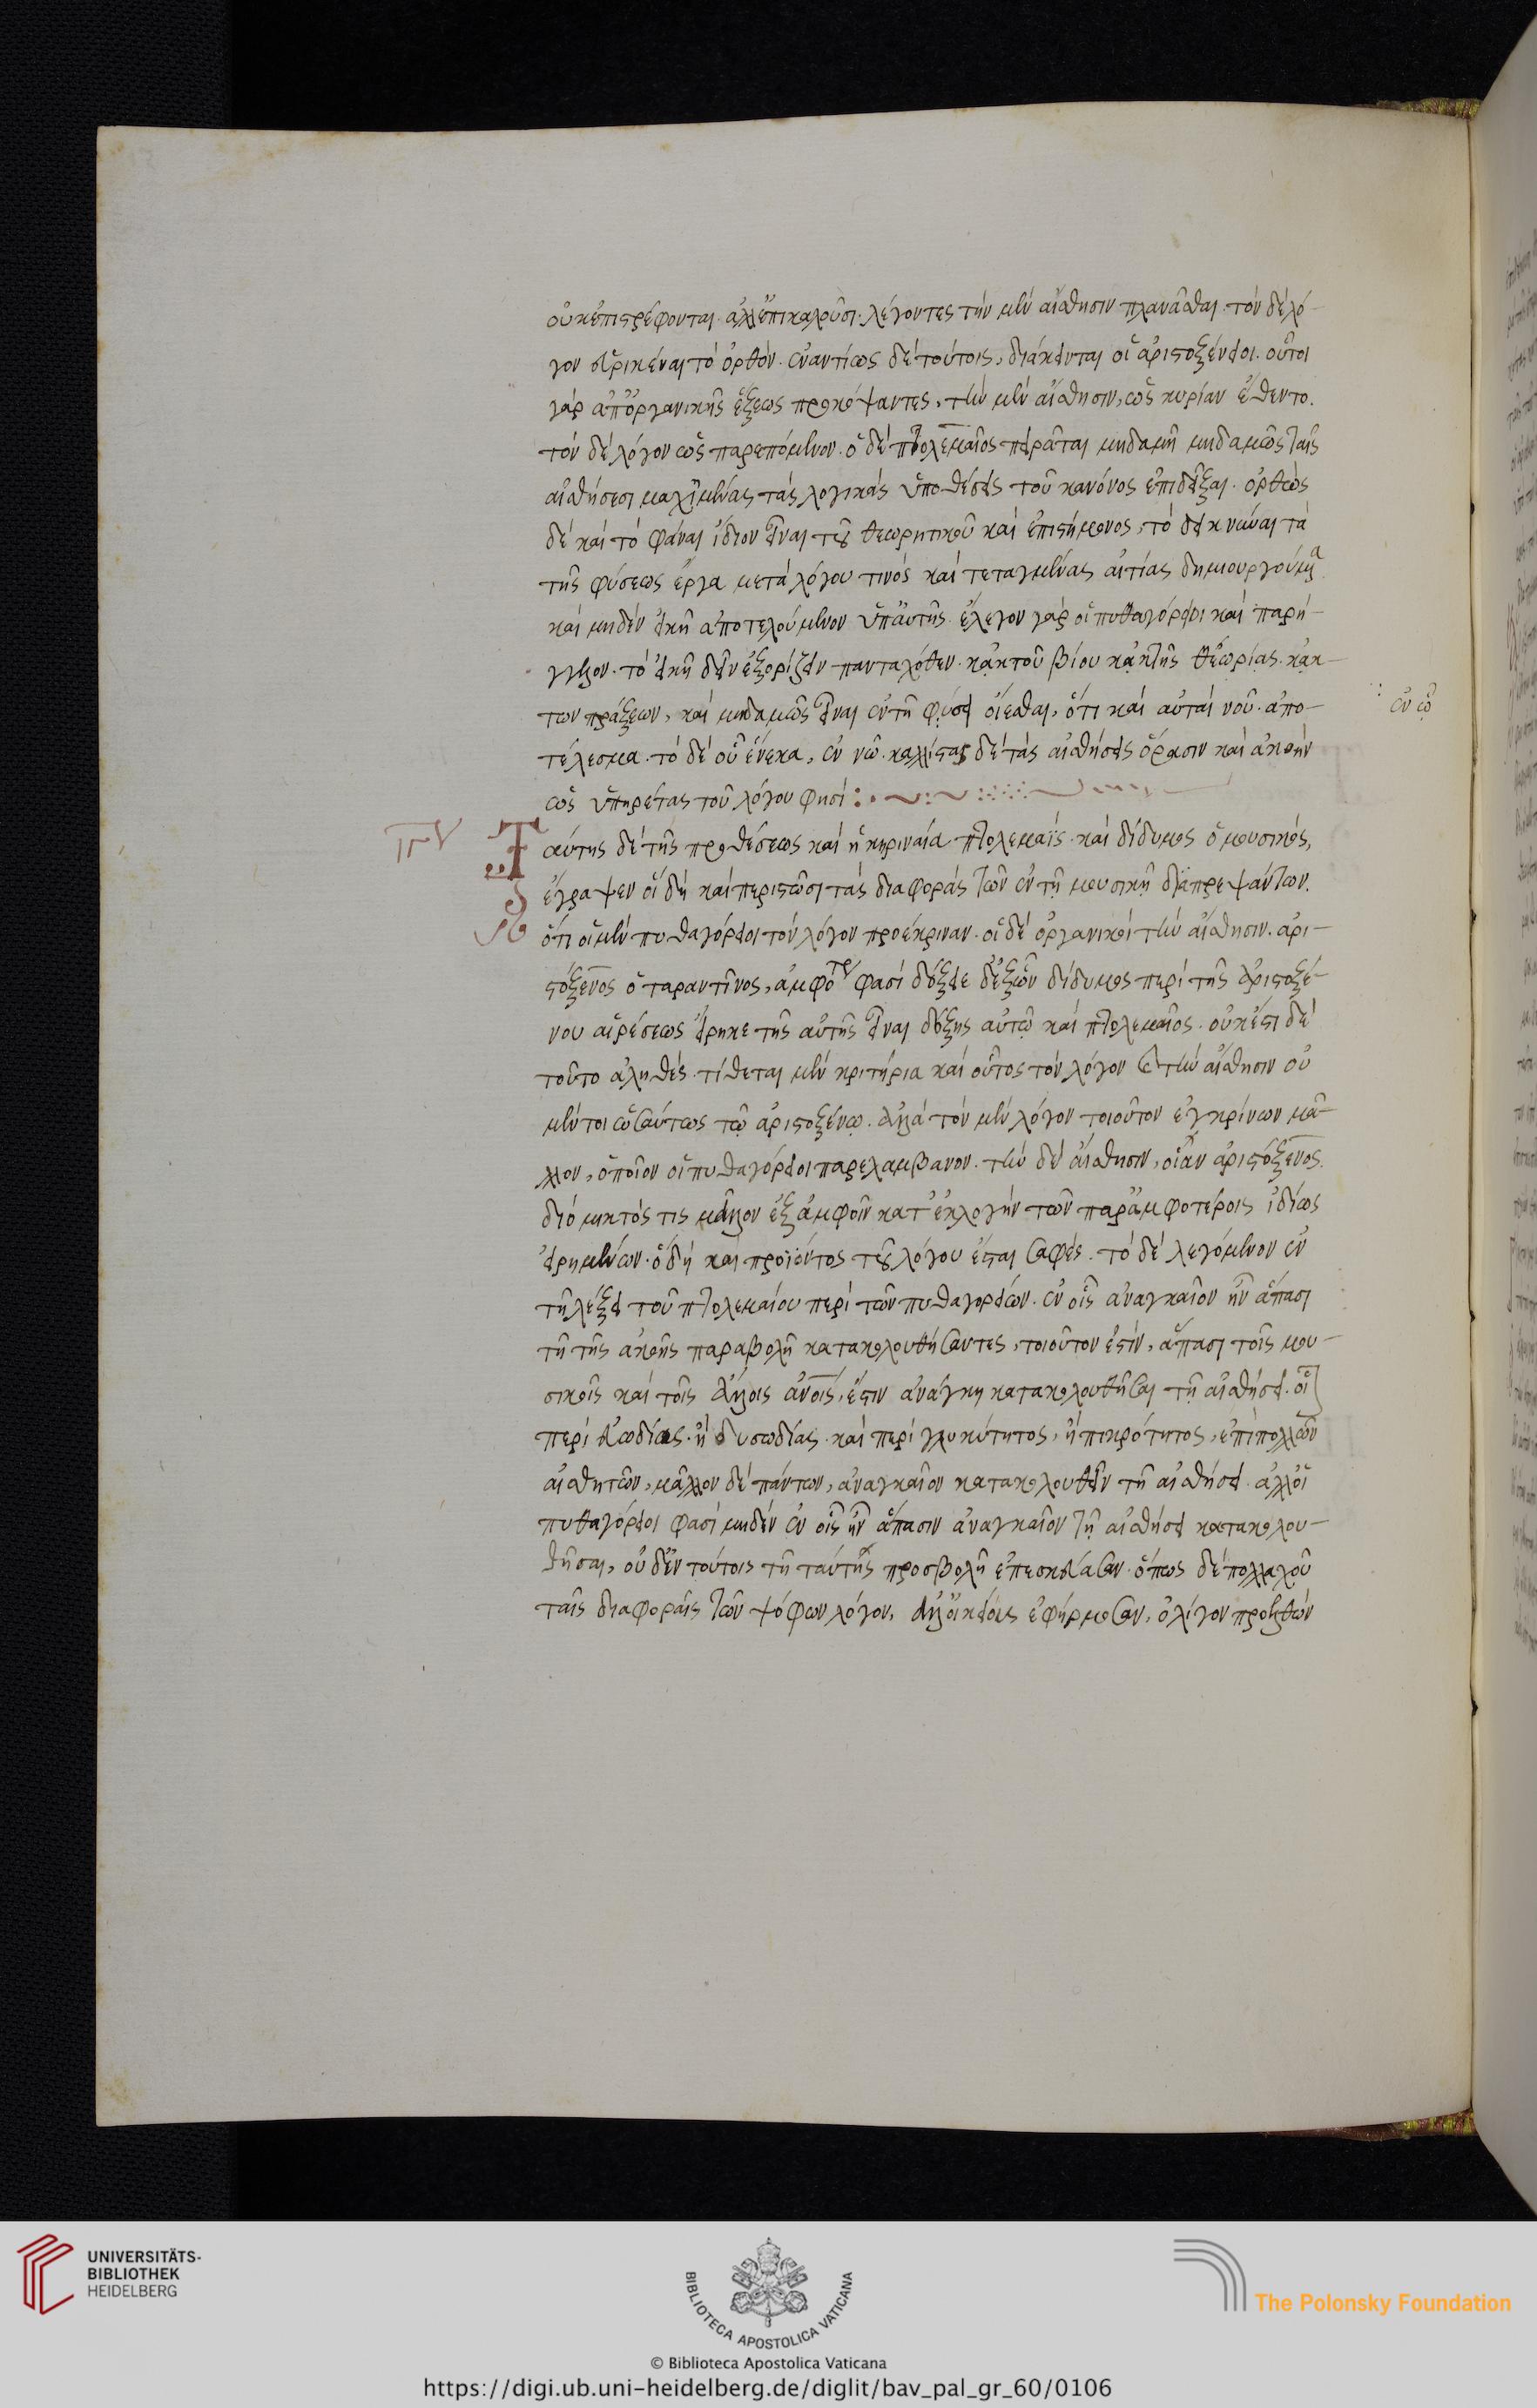 οὐκἐπιστρέφονται. ἀλλἐπικαλοῦσι. λέγοντες τὴν μὲν αἴσθησιν πλανᾶσθαι. τὸν δὲ λό-
γον εὑρικέναι τὸ ὀρθόν. ἐναντίως δὲ τούτοις, διάκεινται οἱ ἀριστοξένειοι. οὗτοι
γὰρ ἀπὀργανικῆς ἕξεως προκόψαντες, τὴν μὲν αἴσθησιν, ὡς κυρίαν ἔθεντο.
τὸν δὲ λόγον ὡς παρεπόμενον. ὁ δὲ πτολεμαῖος πειρᾶται μηδαμῆ μηδαμῶς ταῖς
αἰσθήσεσι μαχιμένας τὰς λογικὰς ὑποθέσεις τοῦ κανόνος ἐπιδεῖξαι. ὀρθῶς
δὲ καὶ τὸ φάναι ἴδιον εἶναι τοῦ θεωρητικοῦ καὶ ἐπιστήμονος, τὸ δεικνύναι τὰ
τῆς φύσεως ἔργα μετὰ λόγου τινὸς καὶ τεταγμένας αἰτίας δημιουργούμενα
καὶ μηδὲν εἰκῆ ἀποτελούμενον ὑπαὐτῆς. ἔλεγον γὰρ οἱ πυθαγόρειοι καὶ παρή-
γγελον. τὸ εἰκῆ δεῖν ἐξορίζειν πανταχόθεν. κἀκ τοῦ βίου κἀκ τῆς θεωρίας. κἀκ
των πράξεων, καὶ μηδαμῶς εἶναι ἐν τῆ φύσει οἴεσθαι, ὅτι καὶ αὐταὶ νοῦ. ἀπο- ἐν ᾧ
τέλεσμα. τὸ δὲ οὗ ἕνεκα, ἐν νῷ. καλλίστας δὲ τὰς αἰσθήσεις ὅρασιν καὶ ἀκοὴν
ὡς ὑπηρέτας τοῦ λόγου φησί:
Ταύτης δὲ τῆς προθέσεως καὶ ἡ κηριναία πτολεμαῒς. καὶ δίδυμος ὁ μουσικός,
ἔγραψεν οἳ δὴ καὶ περιστῶσι τὰς διαφορὰς τῶν ἐν τῆ μουσικῆ διαπρεψάντων.
ὅτι οἱ μὲν πυθαγόρειοι τὸν λόγον προέκριναν. οἱ δὲ ὀργανικοὶ τὴν αἴσθησιν. ἀρι-
στόξενος ὁ ταραντῖνος, ἀμφότερ φασὶ δόξειε δ' ἐξ ὧν δίδυμος περὶ τῆς ἀριστοξέ-
νου αἱρέσεως εἴρηκε τῆς αὐτῆς εἶναι δόξης αὐτῷ καὶ πτολεμαῖος. οὐκἔστι δὲ
τοῦτο ἀληθές. τίθεται μὲν κριτήρια καὶ οὗτος τὸν λόγον καὶ τὴν αἴσθησιν οὐ
μέντοι ὡσαύτως τῷ ἀριστοξένῳ. ἀλλὰ τὸν μὲν λόγον τοιοῦτον ἐγκρίνων μᾶ-
λλον, ὁποῖον οἱ πυθαγόρειοι παρελάμβανον. τὴν δὲ αἴσθησιν, οἵαν ἀριστόξενος.
διὸ μικτός τις μᾶλλον ἐξἀμφοῖν κατ' ἐκλογὴν τῶν παρἀμφοτέροις ἰδίως
εἰρημένων. ὃ δὴ καὶ προϊόντος τοῦ λόγου ἔσται σαφές. τὸ δὲ λεγόμενον ἐν
τῆ λέξει τοῦ πτολεμαίου περὶ τῶν πυθαγορείων. ἐν οἷς ἀναγκαῖον ἦν ἅπασι
τῆ τῆς ἀκοῆς παραβολῆ κατακολουθήσαντες, τοιοῦτον ἐστίν, ἅπασι τοῖς μου-
σικοῖς καὶ τοῖς ἄλλοις ἀνοις, ἔστιν ἀνάγκη κατακολουθῆσαι τῆ αἰσθήσει. οἷ
περὶ εὐωδίας. ἢ δυσωδίας. καὶ περὶ γλυκύτητος, ἢ πικρότητος, ἐπὶπολλῶν
αἰσθητῶν, μᾶλλον δὲ πάντων, ἀναγκαῖον κατακολουθεῖν τῆ αἰσθήσει. ἀλλοἱ
πυθαγόρειοι φασὶ μηδὲν ἐν οἷς ἦν ἅπασιν ἀναγκαῖον τῆ αἰσθήσει κατακολου-
θῆσαι, οὐδἐν τούτοις τῆ ταύτης προσβολῆ ἐπεσκεύασαν. ὅπως δὲ πολλαχοῦ
ταῖς διαφοραῖς τῶν ψόφων λόγον, ἀλλοικείοις ἐφήρμοσαν, ὀλίγον προελθὼν
UNIVERSITÄTS-
BIBLIOTHEK
HEIDELBERG
BIBLIOTECA APOSTOLICA VATICANA
The Polonsky Foundation
© Biblioteca Apostolica Vaticana
https://digi.ub.uni-heidelberg.de/diglit/bav_pal_gr_60/0106